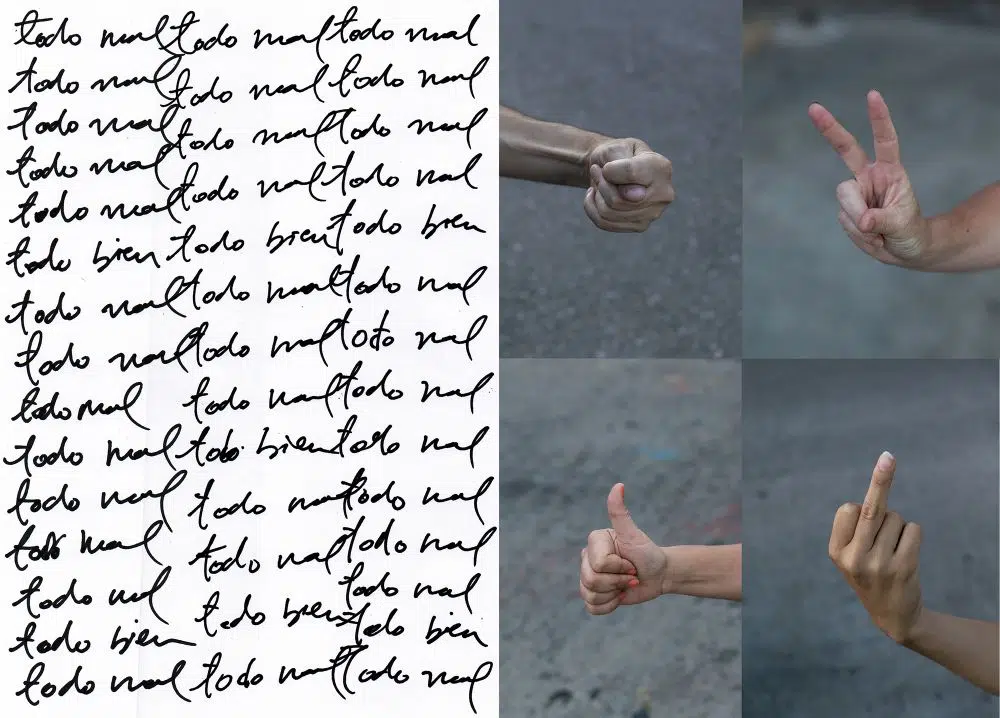 todo mal todo mal todo mal
todo mal todo mal todo mal
todo mal todo mal todo mal
todo mal
todo mal todo mal todo mal
todo bien todo bien todo bien
todo mal todo mal todo mal
todo mal todo mal todo mal
todo mal todo mal todo mal
todo mal todo bien todo mal
todo mal todo mal todo mal
todo mal todo mal todo mal
todo mal todo mal
todo bien todo bien todo bien
todo mal todo mal todo mal